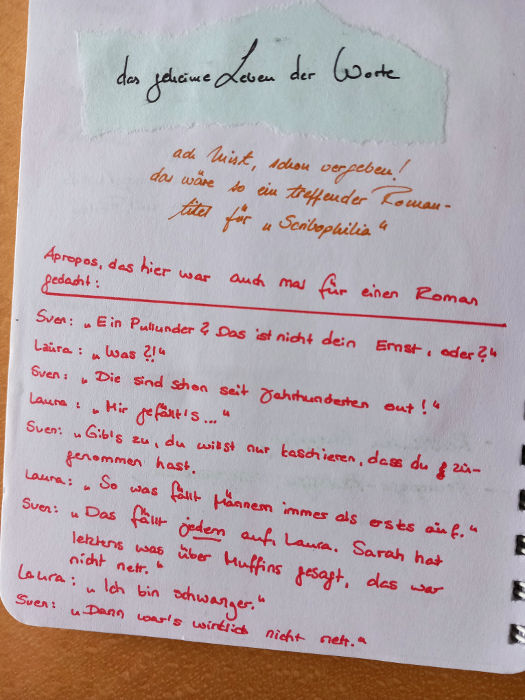 das geheime Leben der Worte
ach Mist, schon vergeben!
das wäre so ein treffender Roman-
titel für „Scribophilia"
Apropos, das hier war auch mal für einen Roman
gedacht:
Sven: „Ein Pullunder? Das ist nicht dein Ernst, oder?"
Laura: „Was?!"
Sven: „Die sind schon seit Jahrhunderten out!"
Laura: „Mir gefällt's..."
Sven: „Gib's zu, du willst nur kaschieren, dass du zu-
genommen hast.
Laura: „So was fällt Männern immer als erstes auf."
Sven: „Das fällt jedem auf, Laura. Sarah hat
letztens was über Muffins gesagt, das war
nicht nett."
Laura: „Ich bin schwanger."
Sven: „Dann war's wirklich nicht nett."